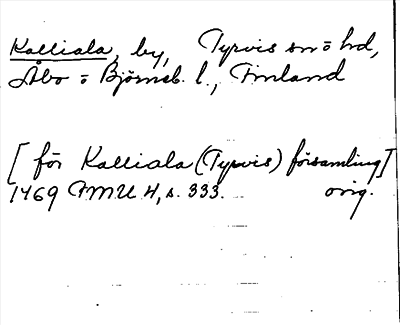 Kalliala, by, Tyrvis sn o hd,
Åbo o Björneb. l., Finland
[för Kalliala (Tyrvis) församling]
1469 FMU 4, s. 333. orig.